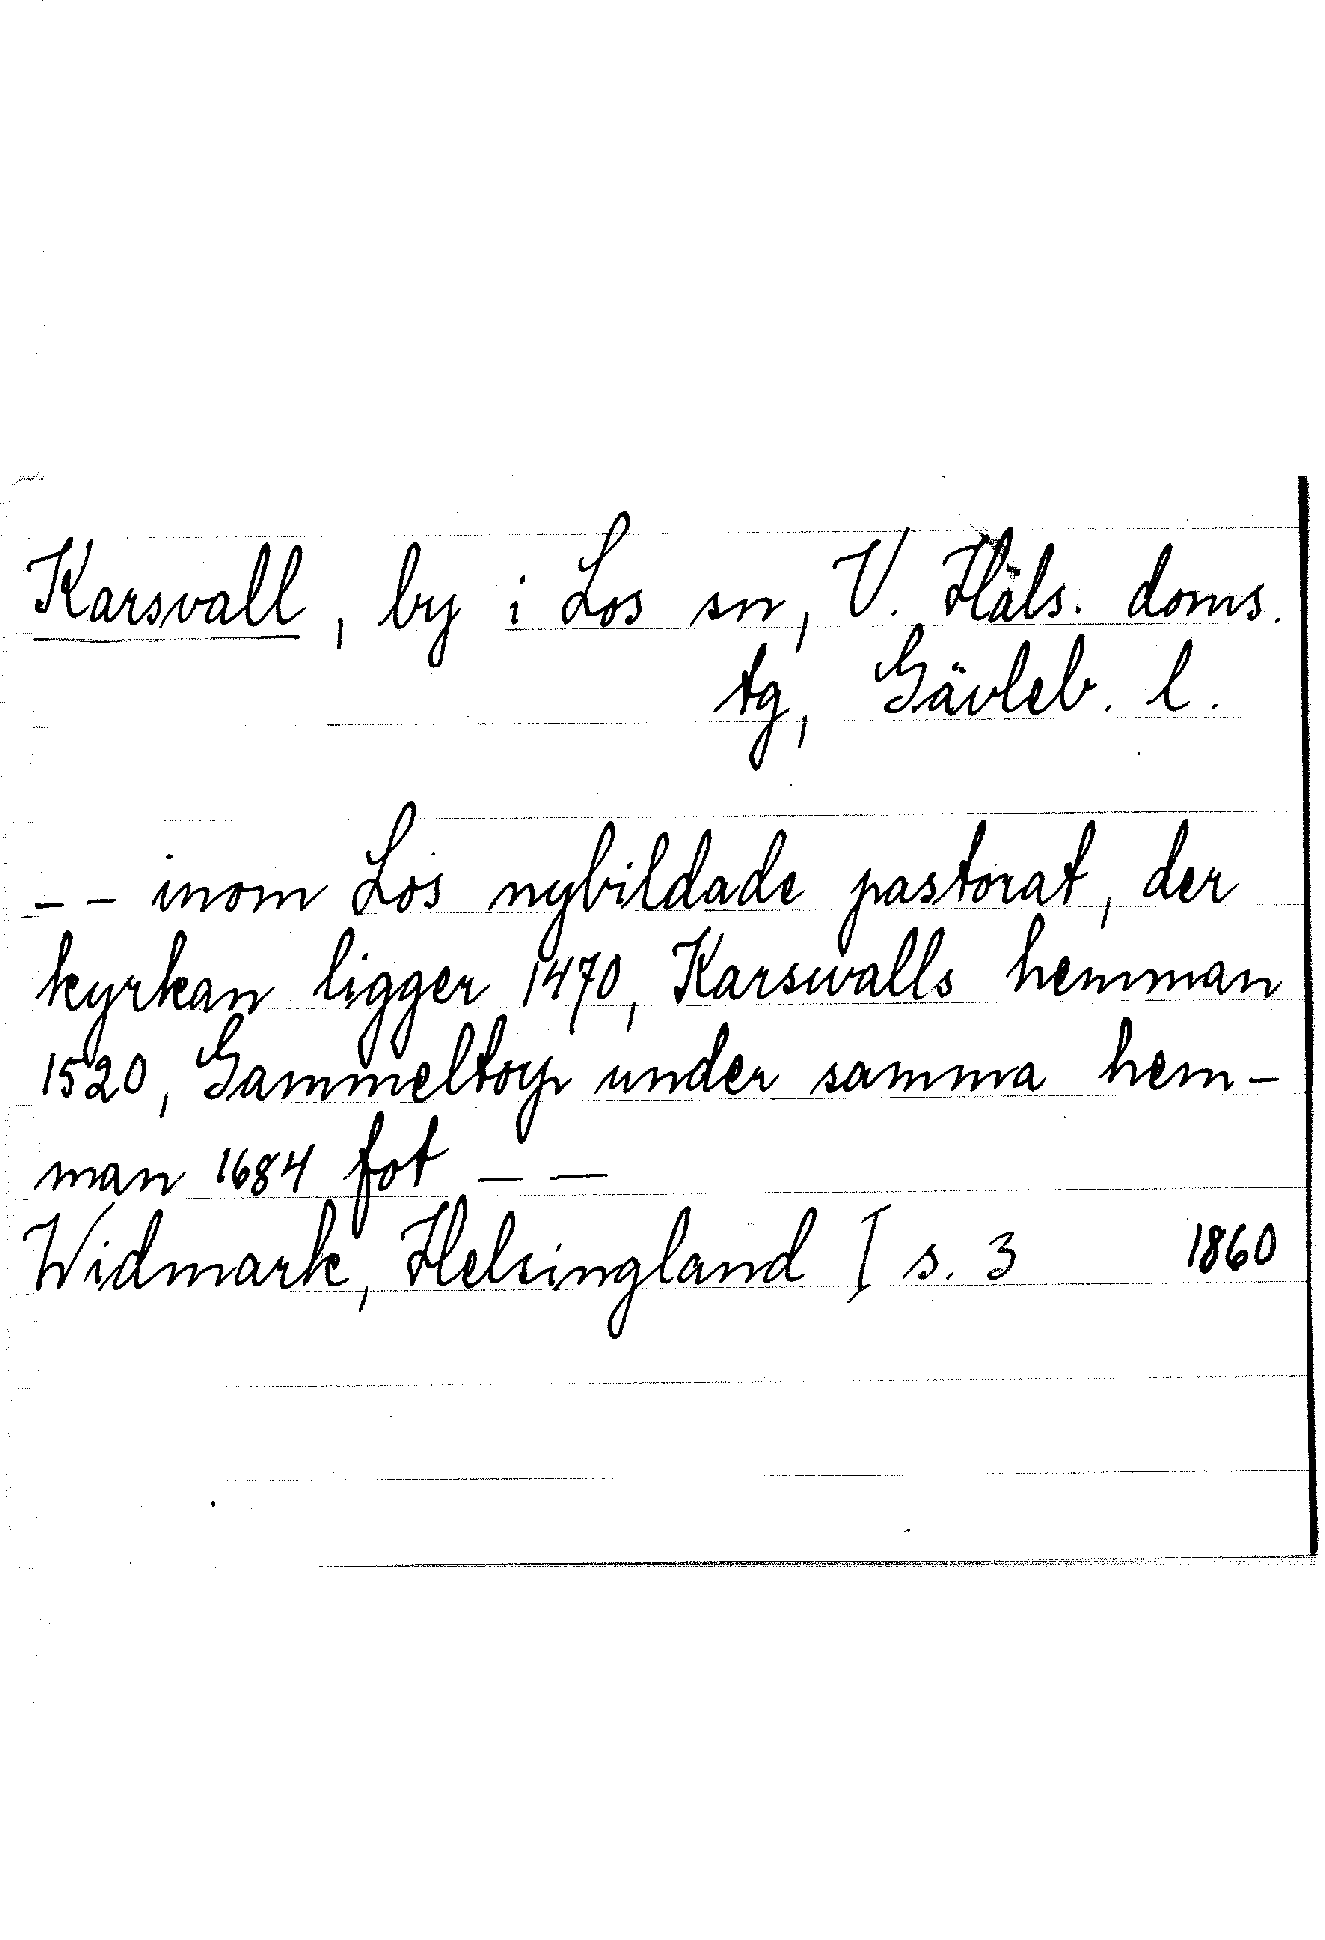 Karsvall, by i Los sn, V. Häls. doms.
tg, Gävleb. l.
-- inom Los nybildade pastorat, der
kyrkan ligger 1470, Karswalls hemman
1520, Gammeltorp under samma hem-
man 1684 fot --
Widmark, Helsingland I s. 3 1860